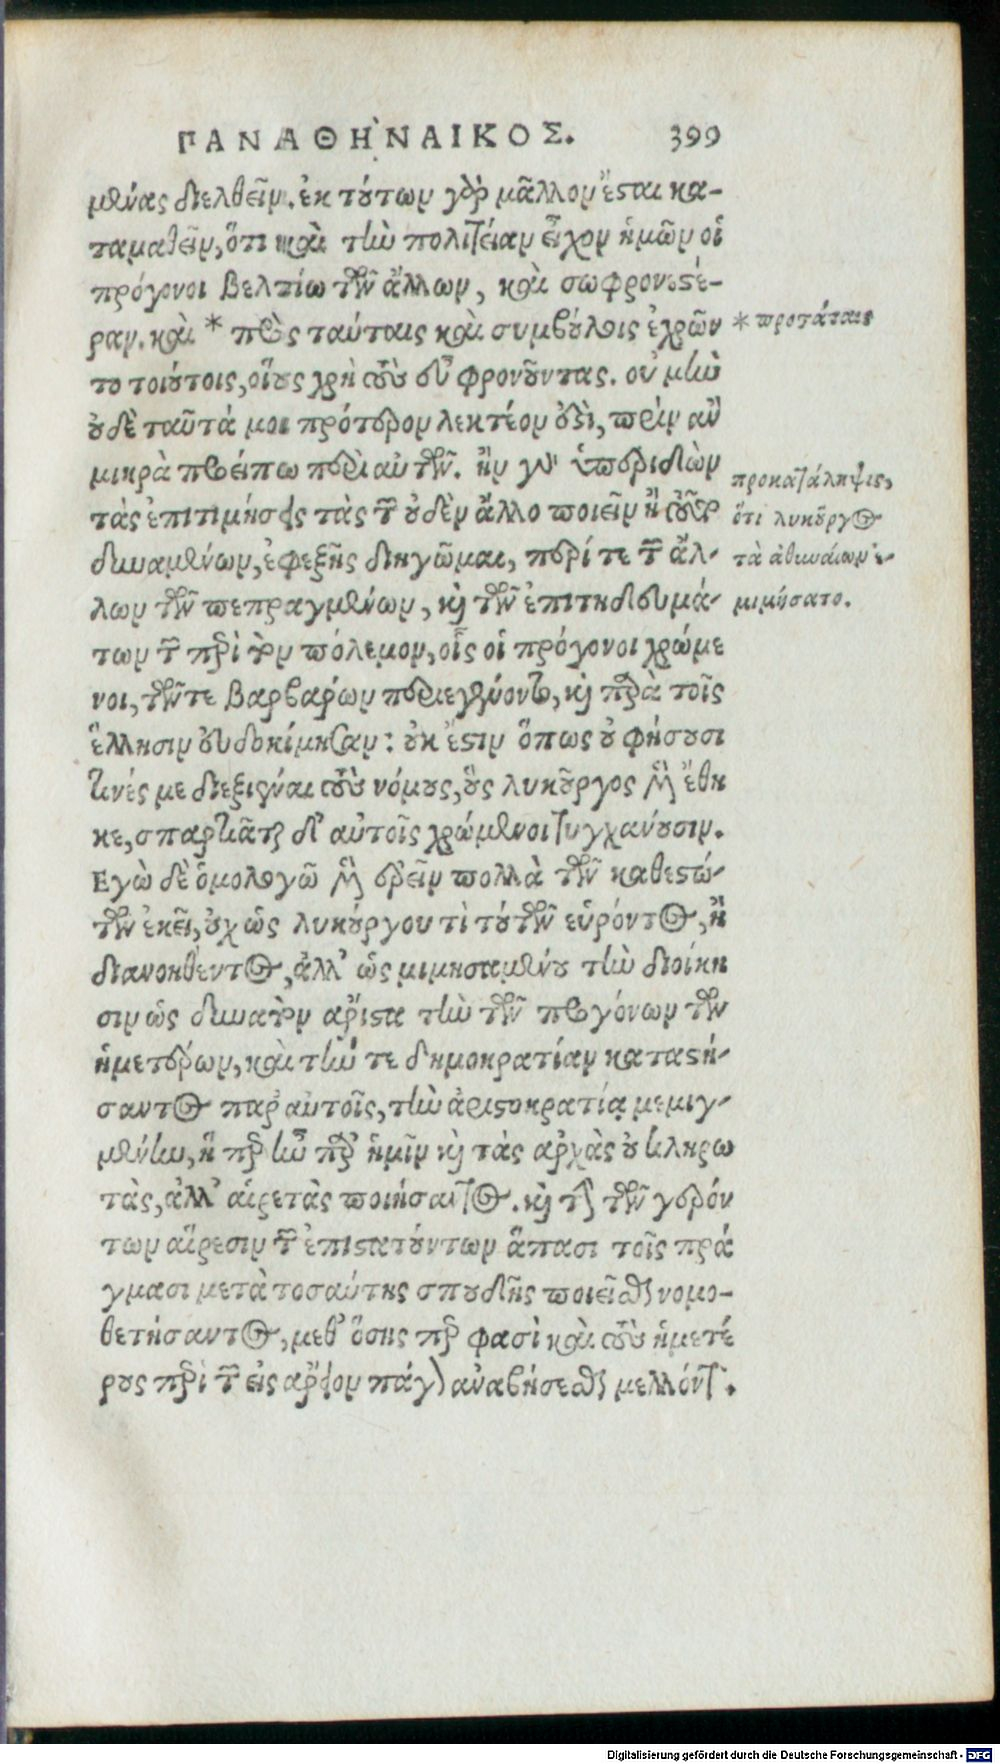 ΠΑΝΑΘΗΝΑΙΚΟΣ. 399
μένας διελθεῖν. ἐκ τούτων γὰρ μᾶλλον ἔσται κα-
ταμαθεῖν, ὅτι καὶ τὴν πολιτείαν εἶχον ἡμῶν οἱ
πρόγονοι βελτίω τῶν ἄλλων, καὶ σωφρονεστέ-
ραν. καὶ * πρὸς ταύταις καὶ συμβούλοις ἐχρῶν
το τοιούτοις, οἵους χρὴ τοὺς εὖ φρονοῦντας. οὐ μὴν
οὐδὲ ταῦτά μοι πρότερον λεκτέον ἐστὶ, πρὶν ἂν
μικρὰ προείπω περὶ αὐτῶν. ἢν γὰρ ὑπεριδὼν
τὰς ἐπιτιμήσεις τὰς τῶν οὐδὲν ἄλλο ποιεῖν ἢ τοῦτο
δυναμένων, ἐφεξῆς διηγῶμαι, περί τε τῶν ἄλ-
λων τῶν πεπραγμένων, καὶ τῶν ἐπιτηδευμά-
των τῶν περὶ τὸν πόλεμον, οἷς οἱ πρόγονοι χρώμε
νοι, τῶν τε βαρβάρων περιεγένοντο, καὶ παρὰ τοῖς
ἕλλησιν εὐδοκίμησαν: οὐκ ἔστιν ὅπως οὐ φήσουσι
τινές με διεξιέναι τοὺς νόμους, οὓς λυκοῦργος μὲν ἔθη
κε, σπαρτιᾶται δ' αὐτοῖς χρώμενοι τυγχάνουσιν.
Εγὼ δὲ ὁμολογῶ μὲν ἐρεῖν πολλὰ τῶν καθεστώ-
των ἐκεῖ, οὐχ ὡς λυκούργου τὶ τούτων εὑρόντος, ἢ
διανοηθέντος, ἀλλ' ὡς μιμησαμένου τὴν διοίκη
σιν ὡς δυνατὸν ἄριστα τὴν τῶν προγόνων τῶν
ἡμετέρων, καὶ τήν τε δημοκρατίαν καταστή-
σαντος παρ' αὐτοῖς, τὴν ἀριστοκρατίᾳ μεμιγ-
μένην, ἥ περ ἦν παρ' ἡμῖν καὶ τὰς ἀρχὰς οὐ κληρω
τὰς, ἀλλ' αἱρετὰς ποιήσαντος. καὶ τὴν τῶν γερόν
των αἵρεσιν τῶν ἐπιστατούντων ἅπασι τοῖς πρά
γμασι μετὰ τοσαύτης σπουδῆς ποιεῖσθαι νομο-
θετήσαντος, μεθ' ὅσης περ φασὶ καὶ τοὺς ἡμετέ
ρους περὶ τῶν εἰς ἄρειον πάγον ἀναβήσεσθαι μελλόντων.
* προτάταις
προκατάληψις,
ὅτι λυκοῦργος
τὰ ἀθηναίων ἐ-
μιμήσατο.
Digitalisierung gefördert durch die Deutsche Forschungsgemeinschaft - DFG